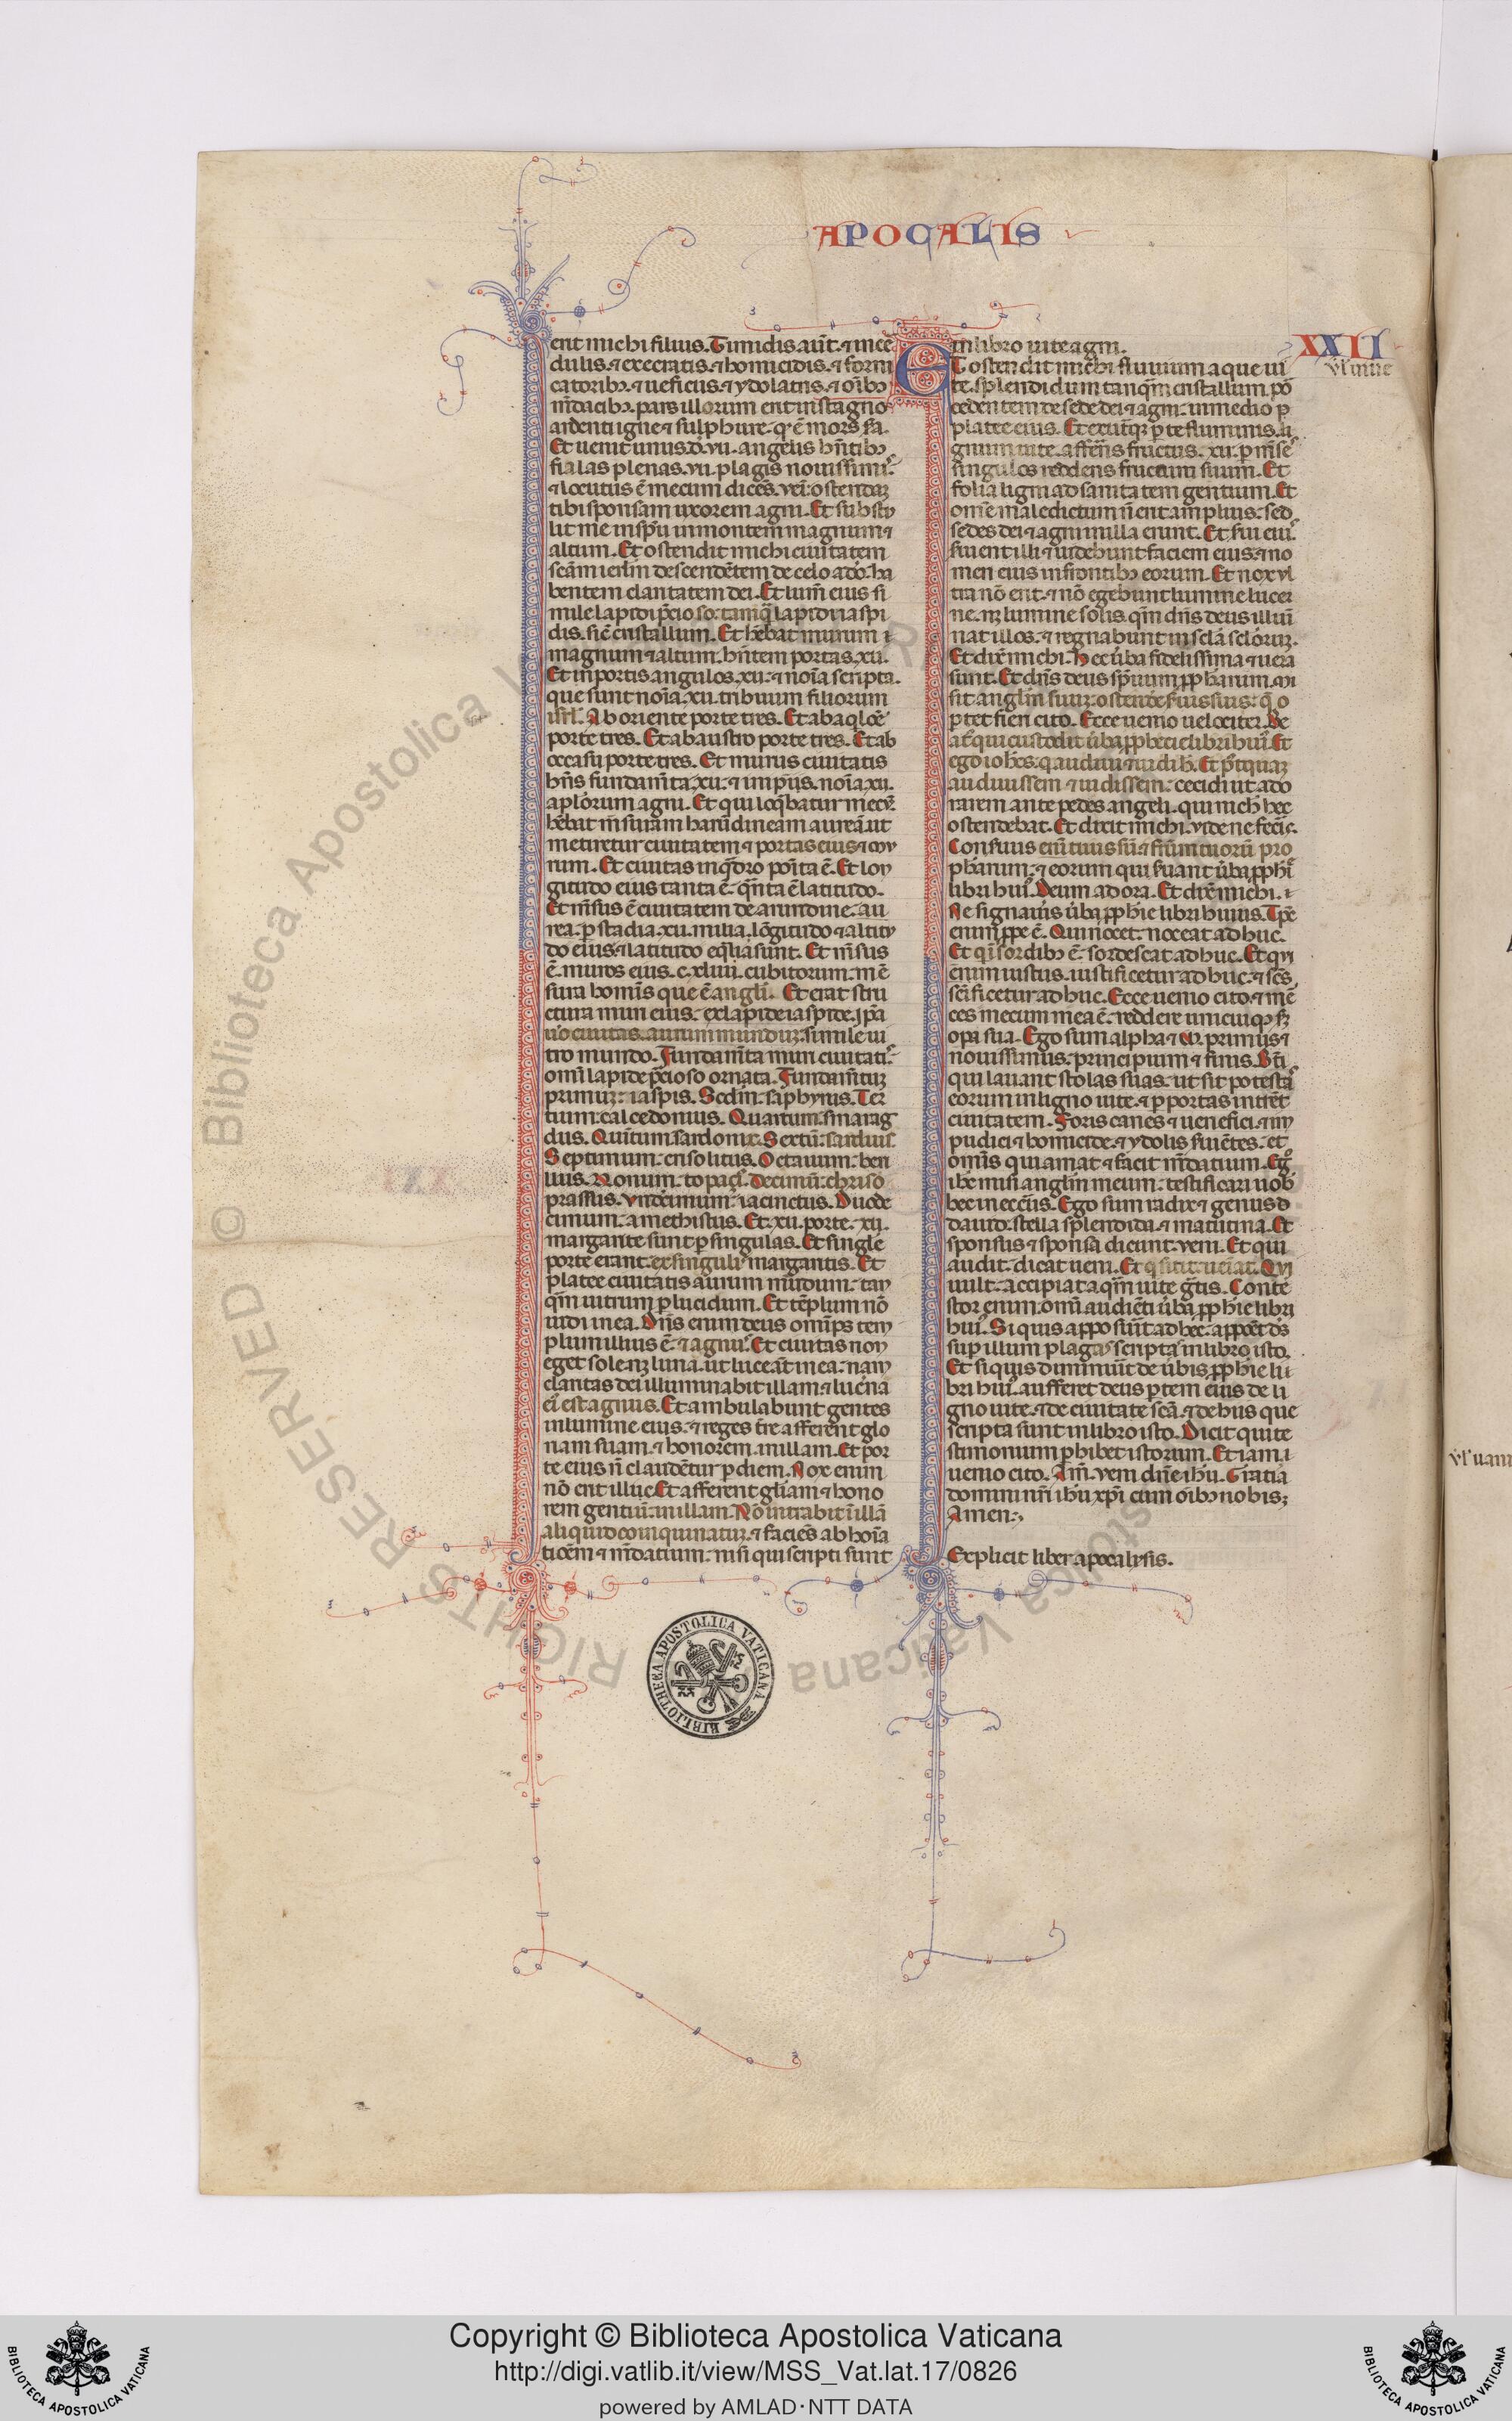 APOCALIS
erit michi filius. Timidis aut̄. ⁊ ī́cre
dulis. ⁊ execratis. ⁊ homicidis. ⁊ forni
catoribꝫ. ⁊ ueficiis. ⁊ ydolatris. ⁊ oīb3
m̄dacibꝫ. pars illorum erit in stagno
ardenti igne ⁊ sulphure. q̄ ē mors sc̄a.
Et uenit unus. d̄. vii. angelis hn̄tibꝫ
fialas plenas. vii. plagis nouissimis.
⁊ locutus ē mecum dicēs. veni ostendaꝫ
tibi sponsam uxorem agni. Et substu
lit me in sp̄u in montem magnum ⁊
altum. Et ostendit michi ciuitatem
sc̄am ierl̄m descendētem de celo a do. ha
bentem claritatem dei. Et lum̄ eius si
mile lapidi p̄cioso. tamq̄ lapidi iaspi
dis. sic̄ cristallum. Et hēbat murum ⁊
magnum ⁊ altum. hn̄tem portas. xii.
Et in portis angulos. xii. ⁊ noīa scripta.
que sunt noīa. xii. tribuum filiorum
isrl̄. Ab oriente porte tres. Et ab aqloē
porte tres. Et ab austro porte tres. Et ab
occasu porte tres. Et murus ciuitatis
hn̄s fundam̄ta. xii. ⁊ in ip̄is. noīa. xii.
aplōrum agni. Et qui loq̄batur mecū
hēbat m̄suram harūdineam aureā. ut
metiretur ciuitatem ⁊ portas eius ⁊ mu
rum. Et ciuitas in q̄dro poīta ē. Et lon
gitudo eius tanta ē. q̄nta ē latitudo.
Et m̄sus ē ciuitatem de arundine. au
rea. ꝑ stadia. xii. milia. lōgitudo ⁊ altitu
do eius. ⁊ latitudo eq̄lia sunt. Et m̄sus
ē. muros eius. c. xliiii. cubitorum. mē
sura homīs que ē angli. Et erat stru
ctura muri eius. ex lapide iaspide. ip̄a
uō ciuitas. aurum munduꝫ. simile ui
tro mundo. Fundam̄ta muri ciuitatis
omī lapide p̄cioso ornata. Fundam̄tuꝫ
primuꝫ. iaspis. Scdm̄. saphyrus. Ter
tium. calcedonius. Quartum. smarag
dus. Quītum. sardonix. Sextū. sardius.
Septimum. crisolitus. Octauum. beri
llus. Nonum. topaci⁹. Decimū. chriso
prassus. Vndecimum. iacinctus. Duode
cimum. amethistus. Et. xii. porte. xii.
margarite sunt ꝑ singulas. Et single
porte erant. ex singulis margaritis. Et
platee ciuitatis aurum mūdum. tan
q̄m uitrum ꝑlucidum. Et tēplum nō
uidi in ea. Dn̄s enim deus omīps tem
plum illius ē. ⁊ agnus. Et ciuitas non
eget sole nꝫ luna. ut luceāt in ea. nam
claritas dei illuminabit illam ⁊ lucīna
ei⁹ est agnus. Et ambulabunt gentes
in lumine eius. ⁊ reges tr̄e afferent glo
riam suam. ⁊ honorem. in illam. Et por
te eius n̄ claudētur ꝑ diem. Nox enim
nō erit illuc. Et afferent gl̄iam ⁊ hono
rem gentiū. in illam. Nō intrabit ī illā
aliquid coinquinatuꝫ. ⁊ faciēs abhoīa
ticēm ⁊ m̄datium. nisi qui scripti sunt
in libro uite agni.
XXII
Et ostendit michi fluuium aque ui
te. splendidum tanq̄m cristallum. ꝓ
cedentem de sede dei ⁊ agni. in medio ꝑ
platee eius. Et ex utraqꝫ ꝑte fluminis. li
gnum uite. afferēs fructus. xii. ꝑ m̄se
singulos reddens fructum suum. Et
folia ligni ad sanitatem gentium. Et
ome maledictum n̄ erit amplius. sed
sedes dei ⁊ agni in illa erunt. Et sui ei⁹
suient illi ⁊ uidebunt faciem eius. ⁊ no
men eius in frontibꝫ eorum. Et nox ul
tra nō erit. ⁊ nō egebunt lumine lucer
ne. nꝫ lumine solis. qm̄ dn̄s deus illuī
nat illos. ⁊ regnabunt in sclā sclōruꝫ.
Et dix̄ michi. Hec ūba fidelissima ⁊ uera
sunt. Et dn̄s deus sp̄uum ꝓphanum. mi
sit anglm̄ suuꝫ. ostendē suis suis. q̄ o
ꝑtet fieri cito. Ecce uenio uelociter. Be
at⁹ qui custodit ūba ꝓphecie libri hui⁹. Et
ego ioh̄es. q audiui ⁊ uidi h̄. Et p̄tquaꝫ
audiuissem ⁊ uidissem. cecidi ut ado
rarem ante pedes angeli. qui mich̄ hec
ostendebat. Et dicit michi. vide ne fecis.
Conseruus enī tuus sū ⁊ fr̄um tuorū pro
phanum. ⁊ eorum qui suant ūba ꝓphie
libri hui⁹. Deum adora. Et dix̄ michi. ⁊
Ne signauis ūba ꝓphie libri huius. Tp̄e
enim ꝓpe ē. Qui nocet. noceat adhuc.
Et qī sordibꝫ ē. sordescat adhuc. Et qui
enim iustus. iustificetur adhuc. ⁊ scs̄.
sc̄ificetur adhuc. Ecce uenio cito. ⁊ mē
ces mecum mea ē. reddere unicuiqꝫ sꝫ
opa sua. Ego sum alpha ⁊ ω. primus ⁊
nouissimus. principium ⁊ finis. Bt̄i
qui lauant stolas suas. ut sit potestas
eorum in ligno uite. ⁊ ꝑ portas intrēt
ciuitatem. Foris canes ⁊ uenefici. ⁊ im
pudici ⁊ homicide. ⁊ ydolis suiētes. et
omīs qui amat ⁊ facit m̄datium. Ego
ihc̄ misi anglm̄ meum. testificari uob̄
hec in ecc̄iis. Ego sum radix ⁊ genus d̄
dauid. stella splendida. ⁊ matutina. Et
sponsus ⁊ sponsa dicunt. veni. Et qui
audit. dicat ueni. Et q sitit. ueniat. Qui
uult. accipiat aq̄m uite gr̄tis. Conte
stor enim. omī audiēti ūba ꝓphie libri
hui⁹. Si quis apposuīt ad hec. appoēt ds̄
suꝑ illum plagas scriptas in libro isto.
Et si quis diminuīt de ūbis ꝓphie li
bri hui⁹. aufferet deus ꝑtem eius de li
gno uite. ⁊ de ciuitate sc̄a. ⁊ de hiis que
scripta sunt in libro isto. Dicit qui te
stimonium ꝑhibet istorum. Et iam. ⁊
uenio cito. Am̄. veni dn̄e ihū. Gratia
domini nr̄i ihū xp̄i cum oībꝫ nobis.
Amen.
Explicit liber apocalysis.
BIBLIOTHECA APOSTOLICA VATICANA
© Biblioteca Apostolica Vaticana
RIGHTS RESERVED
Copyright © Biblioteca Apostolica Vaticana
http://digi.vatlib.it/view/MSS_Vat.lat.17/0826
powered by AMLAD·NTT DATA
BIBLIOTECA APOSTOLICA VATICANA
BIBLIOTECA APOSTOLICA VATICANA